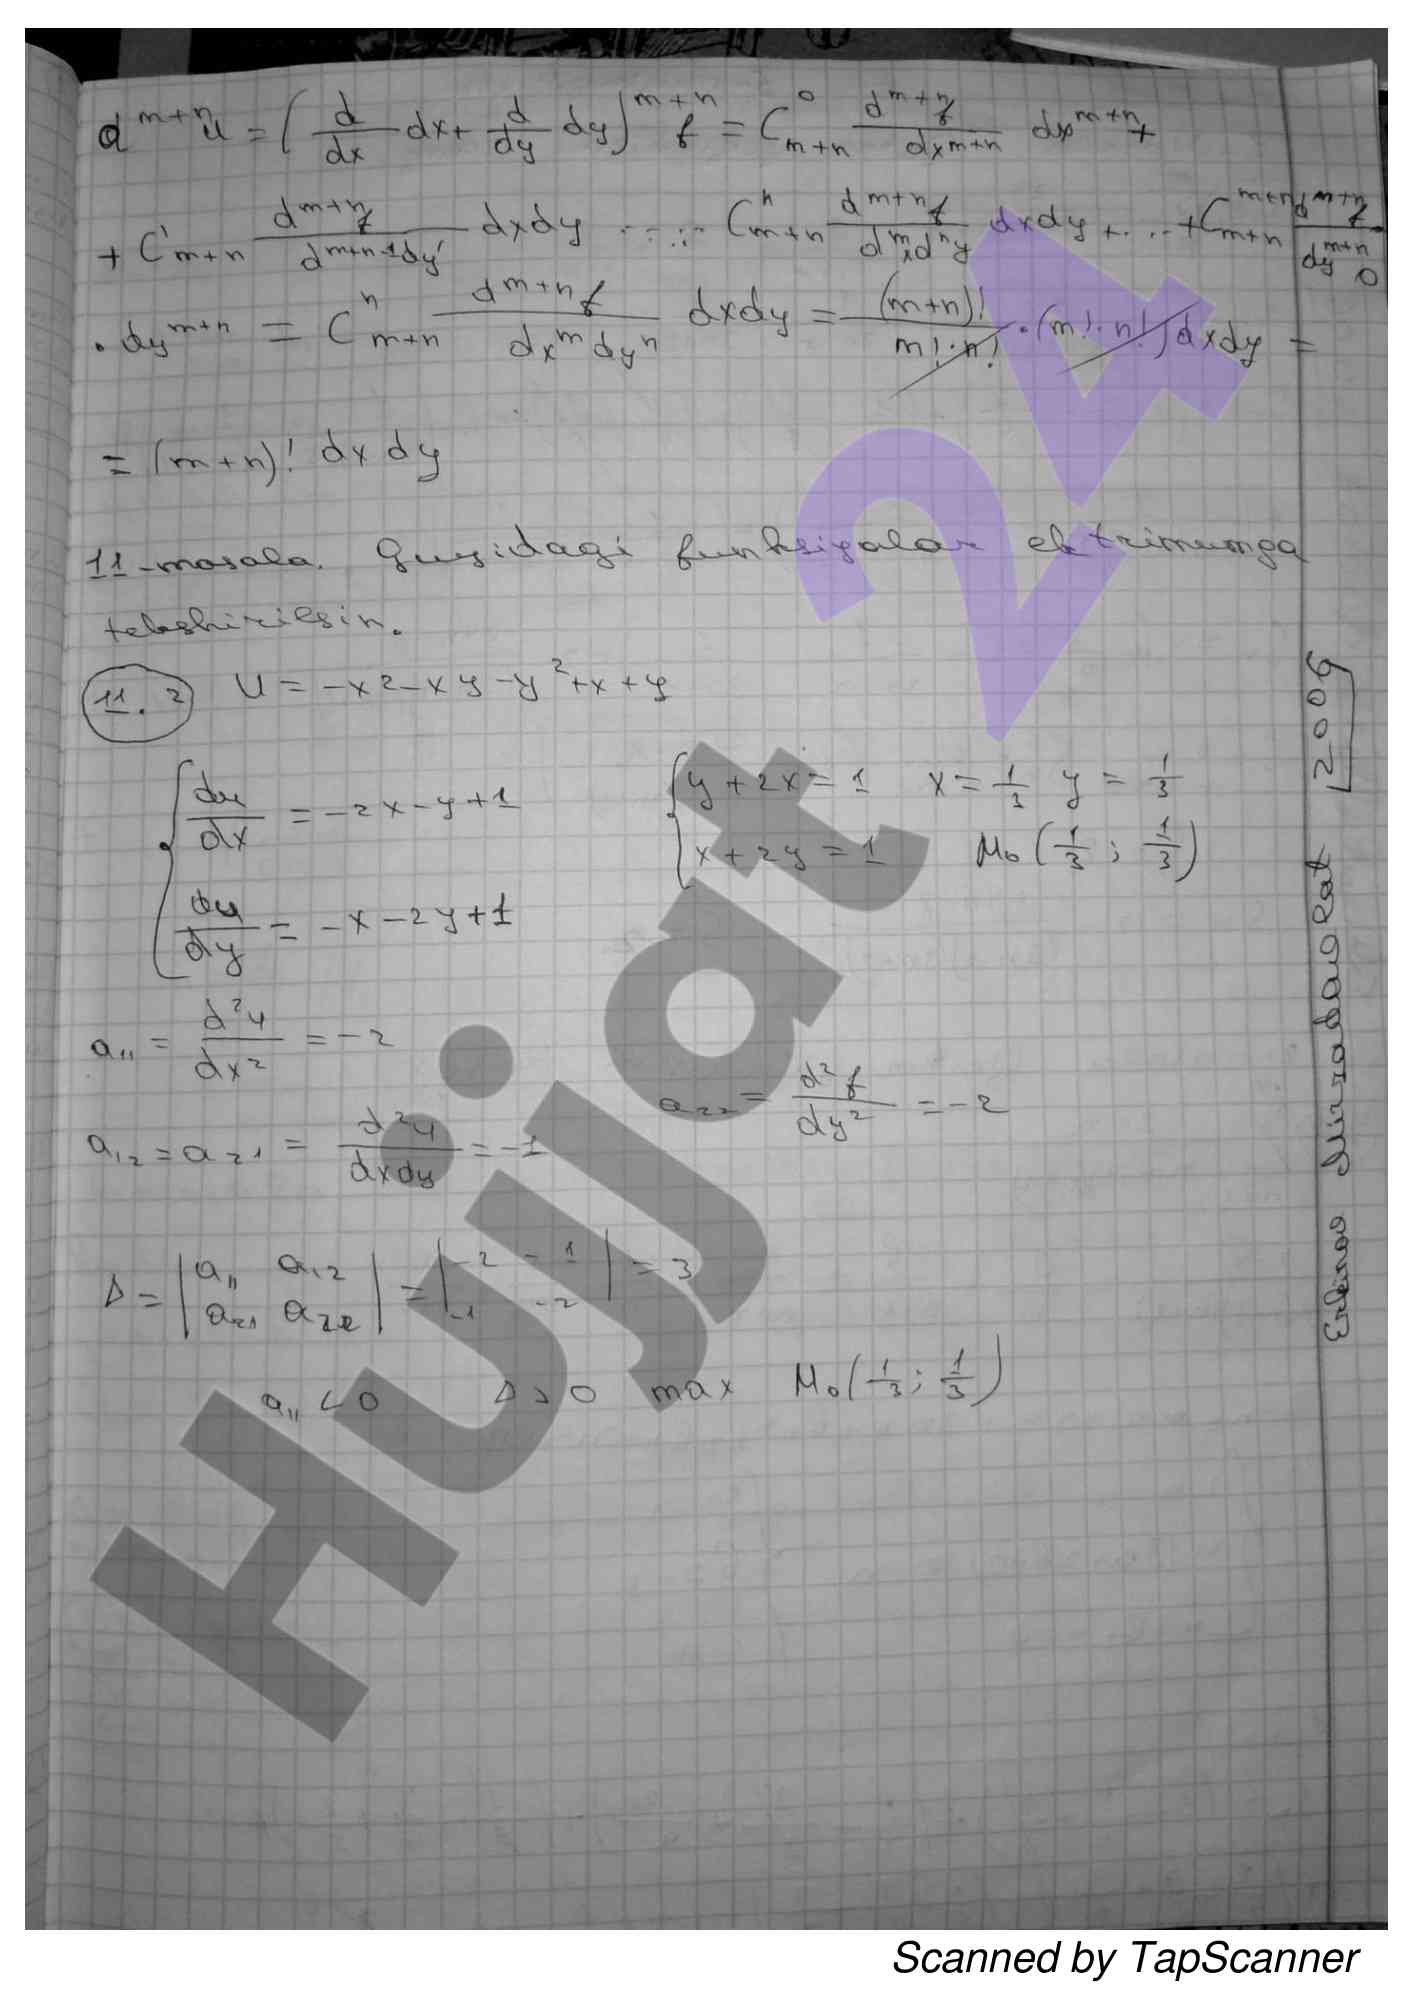 d^{m+n}u = (d/dx dx + d/dy dy)^{m+n} f = C^0_{m+n} d^{m+n}f/dx^{m+n} dx^{m+n} +
+ C^1_{m+n} d^{m+n}f/d^{m+n-1}dy^1 dxdy ..... C^n_{m+n} d^{m+n}f/d^m x d^n y dxdy + ... + C^{m+n}_{m+n} d^{m+n}f/dy^{m+n}
. dy^{m+n} = C^n_{m+n} d^{m+n}f/dx^m dy^n dxdy = (m+n)!/m!·n! · (m!·n!) dxdy =
= (m+n)! dxdy
11-masala. Quyidagi funksiyalar ektrimumga
tekshirilsin.
11.2 U = -x2-xy-y²+x+y
{ du/dx = -2x-y+1 { y+2x=1 x=1/3 y=1/3
x+2y=1 M₀(1/3; 1/3)
du/dy = -x-2y+1
a₁₁ = d²u/dx² = -2
a₂₂ = d²f/dy² = -2
a₁₂ = a₂₁ = d²u/dxdy = -1
Δ = |a₁₁ a₁₂| = |-2 -1| = 3
|a₂₁ a₂₂| |-1 -2|
a₁₁ < 0 Δ > 0 max M₀(1/3; 1/3)
Hujjat 24
Scanned by TapScanner